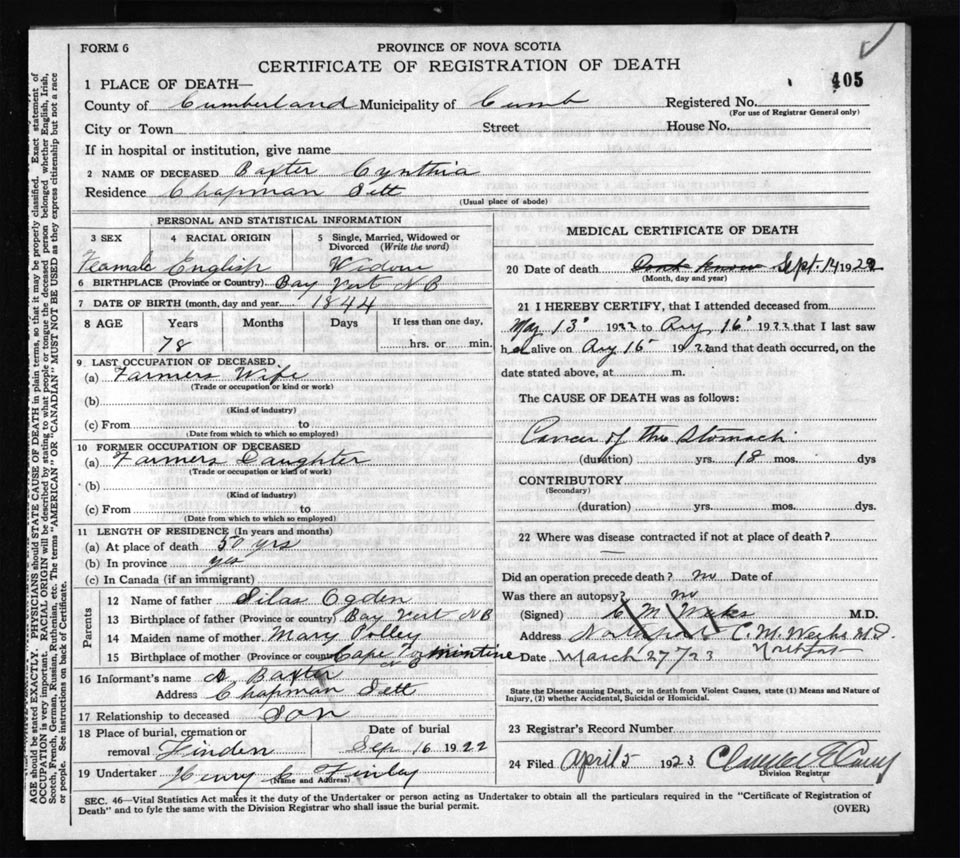 FORM 6
PROVINCE OF NOVA SCOTIA
CERTIFICATE OF REGISTRATION OF DEATH
405
1 PLACE OF DEATH—
County of Cumberland Municipality of Cumb Registered No.
(For use of Registrar General only)
City or Town Street House No.
If in hospital or institution, give name
2 NAME OF DECEASED Baxter Cynthia
Residence Chapman Sett
(Usual place of abode)
PERSONAL AND STATISTICAL INFORMATION
3 SEX 4 RACIAL ORIGIN 5 Single, Married, Widowed or Divorced (Write the word)
Feamale English Widow
6 BIRTHPLACE (Province or Country) Bay Vert N B
7 DATE OF BIRTH (month, day and year) 1844
8 AGE Years Months Days If less than one day,
78 hrs. or min.
9 LAST OCCUPATION OF DECEASED
(a) Farmers Wife
(Trade or occupation or kind or work)
(b)
(Kind of industry)
(c) From to
(Date from which to which so employed)
10 FORMER OCCUPATION OF DECEASED
(a) Farmers Daughter
(Trade or occupation or kind of work)
(b)
(Kind of industry)
(c) From to
(Date from which to which so employed)
11 LENGTH OF RESIDENCE (In years and months)
(a) At place of death 50 yrs
(b) In province yes
(c) In Canada (if an immigrant)
Parents
12 Name of father Silas Ogden
13 Birthplace of father (Province or country) Bay Vert N B
14 Maiden name of mother Mary Polley
15 Birthplace of mother (Province or country) Cape Tormintine
N B
16 Informant's name A Baxter
Address Chapman Sett
17 Relationship to deceased Son
18 Place of burial, cremation or removal Linden Date of burial Sep 16 1922
19 Undertaker Henry C Finley
(Name and Address)
MEDICAL CERTIFICATE OF DEATH
20 Date of death Dont know Sept. 14 1922
(Month, day and year)
21 I HEREBY CERTIFY, that I attended deceased from
May 13 1922 to Aug 16 1922 that I last saw
h alive on Aug 16 1922 and that death occurred, on the
date stated above, at m.
The CAUSE OF DEATH was as follows:
Cancer of the Stomach
(duration) yrs. 18 mos. dys
CONTRIBUTORY
(Secondary)
(duration) yrs. mos. dys.
22 Where was disease contracted if not at place of death?
Did an operation precede death? no Date of
Was there an autopsy? no
(Signed) C M Weeks M.D.
Address C. M. Weeks M.D.
Date March 27/23
State the Disease causing Death, or in death from Violent Causes, state (1) Means and Nature of
Injury, (2) whether Accidental, Suicidal or Homicidal.
23 Registrar's Record Number
24 Filed April 5 1923
Division Registrar
SEC. 46—Vital Statistics Act makes it the duty of the Undertaker or person acting as Undertaker to obtain all the particulars required in the "Certificate of Registration of
Death" and to fyle the same with the Division Registrar who shall issue the burial permit. (OVER)
AGE should be stated EXACTLY. PHYSICIANS should STATE CAUSE OF DEATH in plain terms, so that it may be properly classified. Exact statement of
OCCUPATION is very important. RACIAL ORIGIN will be described by stating to what people or tongue the deceased person belonged whether English, Irish,
Scotch, French, German, Russian, Ruthenian, etc. The terms "AMERICAN" OR "CANADIAN" MUST NOT BE USED as they express citizenship but not a race
or people. See instructions on back of Certificate.